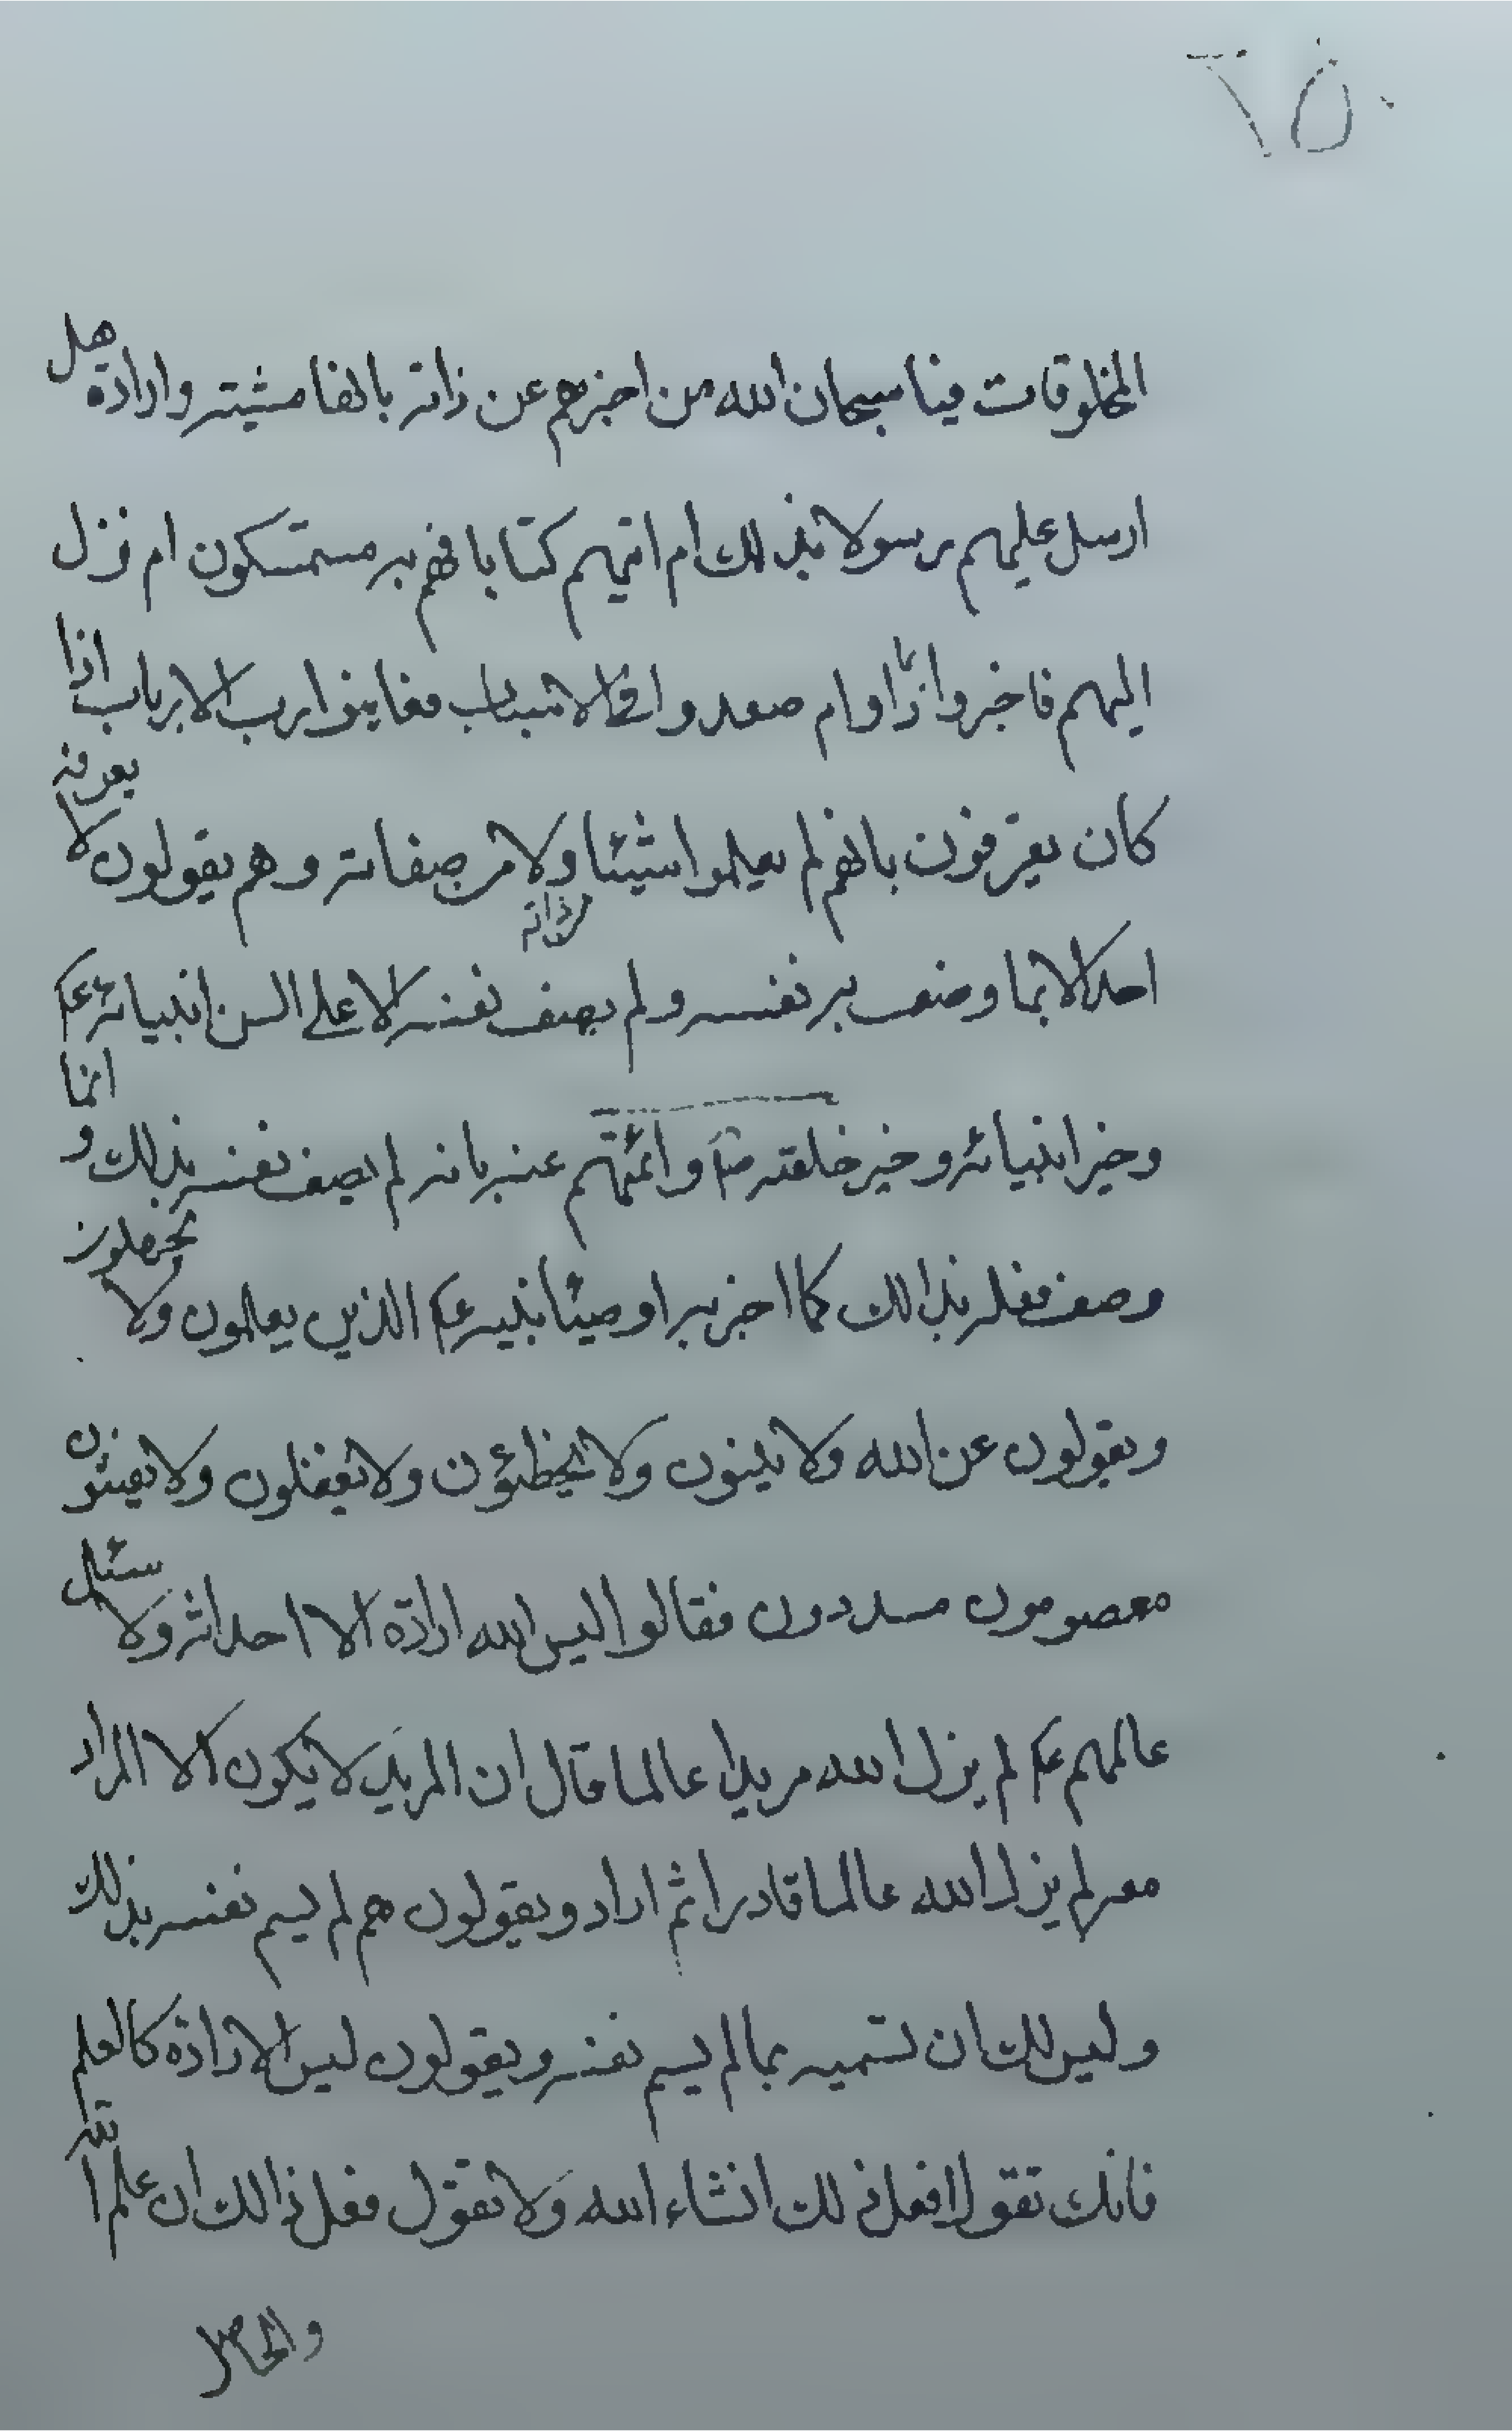 ٢٥٠
المخلوقات فينا سبحان الله من اخبرهم عن ذاته بانها مشيته وارادة هل
ارسل عليهم رسولا بذلك ام اتيهم كتابا فهم به مستمسكون ام نزل
اليهم فاخبروا ام صعدوا في الاسباب فعاينوا رب الارباب اذا
كان يعترفون بانهم لم يعلموا شيئا ولا من صفاته وهم يقولون لا يعرفه
من ذاته
احد الا بما وصف به نفسه ولم يصف نفسه الا على السن انبيائه ع
وخير انبيائه وخير خلقته ص وائمتهم عنه بانه لم يصف نفسه بذلك و انما
وصف فعله بذالك كما اخبر به اوصيئا نبيه ع الذين يعلمون ولا يجهلون
ويقولون عن الله ولا ينون ولا يخطئون ولا يغفلون ولا يغيئون
معصومون مسددون فقالوا اليس لله ارادة الا احداثه ولا سئل
عالمهم ع لم يزل الله مريدا عالما قال ان المريد لا يكون الا المراد
معه لم يزل الله عالما قادرا ثم اراد ويقولون هم لم يسم نفسه بذلك
وليس لك ان تسميه بما لم يسم نفسه ويقولون ليس الارادة كالعلم
فانك تقول افعل ذلك انشاء الله ولا تقول فعل ذالك ان علم الله
والحاصل